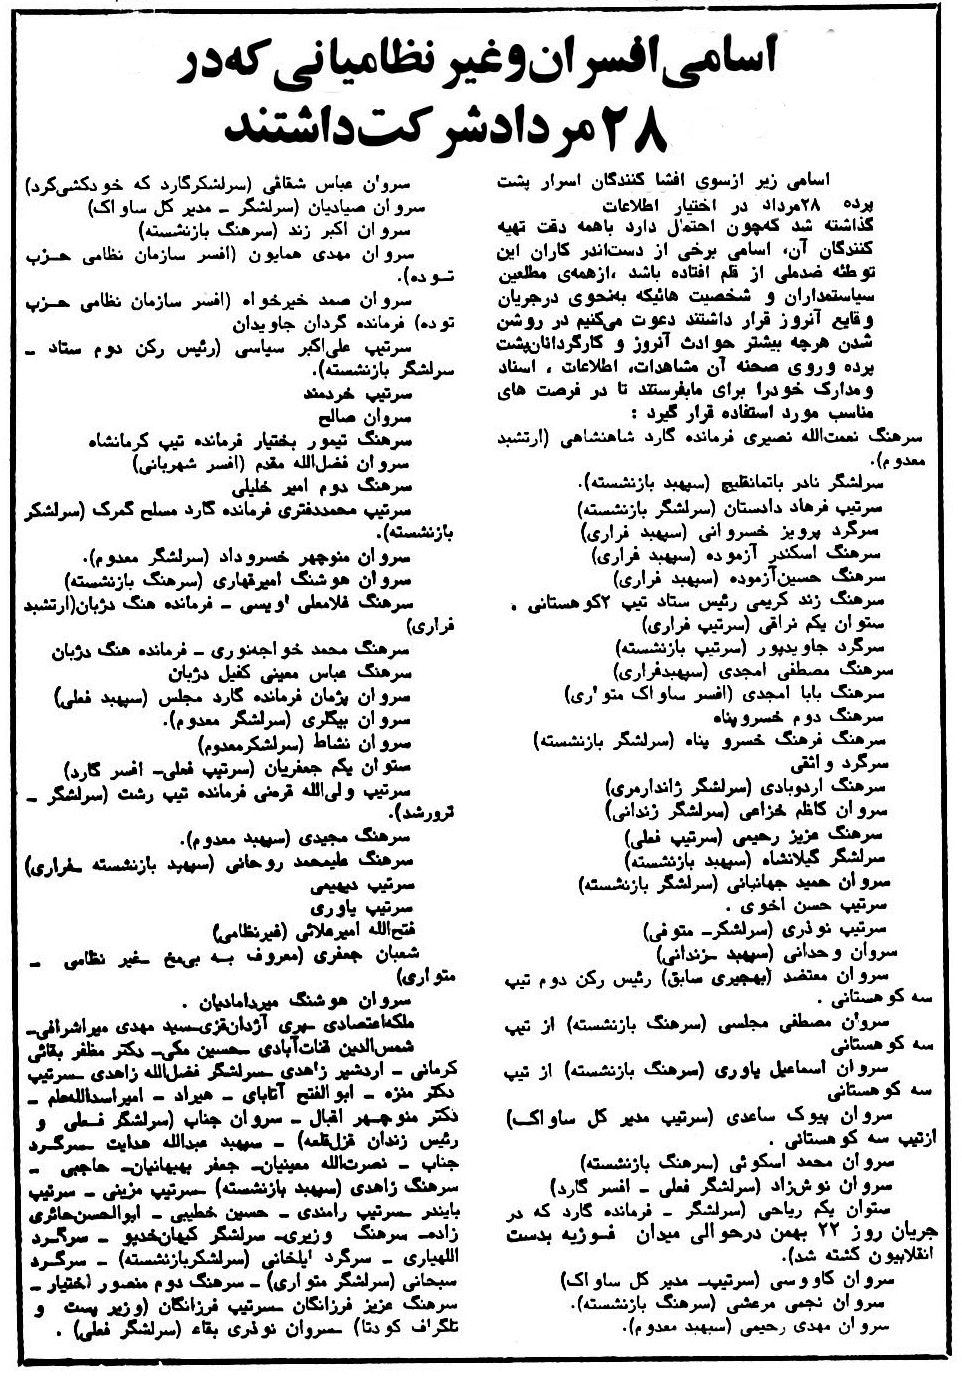 اسامی افسران و غیر نظامیانی که در
۲۸ مرداد شرکت داشتند
اسامی زیر ازسوی افشا کنندگان اسرار پشت
پرده ۲۸مرداد در اختیار اطلاعات
گذاشته شد که‌چون احتمال دارد باهمه دقت تهیه
کنندگان آن، اسامی برخی از دست‌اندر کاران این
توطئه ضدملی از قلم افتاده باشد ،ازهمه‌ی مطلعین
سیاستمداران و شخصیت هائیکه به‌نحوی درجریان
وقایع آنروز قرار داشتند دعوت می‌کنیم در روشن
شدن هرچه بیشتر حوادث آنروز و کارگردانان‌پشت
پرده وروی صحنه آن مشاهدات، اطلاعات ، اسناد
ومدارک خودرا برای مابفرستند تا در فرصت های
مناسب مورد استفاده قرار گیرد :
سرهنگ نعمت‌الله نصیری فرمانده گارد شاهنشاهی (ارتشبد
معدوم).
سرلشگر نادر باتمانقلیچ (سپهبد بازنشسته).
سرتیپ فرهاد دادستان (سرلشگر بازنشسته)
سرگرد پرویز خسروانی (سپهبد فراری)
سرهنگ اسکندر آزموده (سپهبد فراری)
سرهنگ حسین‌آزموده (سپهبد فراری)
سرهنگ زند کریمی رئیس ستاد تیپ ۲کوهستانی .
ستوان یکم نراقی (سرتیپ فراری)
سرگرد جاویدپور (سرتیپ بازنشسته)
سرهنگ مصطفی امجدی (سپهبدفراری)
سرهنگ بابا امجدی (افسر ساواک متواری)
سرهنگ دوم خسروپناه
سرهنگ فرهنگ خسرو پناه (سرلشگر بازنشسته)
سرگرد واثقی
سرهنگ اردوبادی (سرلشگر ژاندارمری)
سروان کاظم خزاعی (سرلشگر زندانی)
سرهنگ عزیز رحیمی (سرتیپ فعلی)
سرلشگر گیلانشاه (سپهبد بازنشسته)
سروان حمید جهانبانی (سرلشگر بازنشسته)
سرتیپ حسن اخوی .
سرتیپ نوذری (سرلشگر- متوفی)
سروان وحدانی (سپهبد -زندانی)
سروان معتضد (بهجیری سابق) رئیس رکن دوم تیپ
سه کوهستانی .
سروان مصطفی مجلسی (سرهنگ بازنشسته) از تیپ
سه کوهستانی
سروان اسماعیل یاوری (سرهنگ بازنشسته) از تیپ
سه کوهستانی
سروان پیوک ساعدی (سرتیپ مدیر کل ساواک)
ازتیپ سه کوهستانی .
سروان محمد اسکوئی (سرهنگ بازنشسته)
سروان نوش‌زاد (سرلشگر فعلی - افسر گارد)
ستوان یکم ریاحی (سرلشگر - فرمانده گارد که در
جریان روز ۲۲ بهمن درحوالی میدان فوزیه بدست
انقلابیون کشته شد).
سروان کاووسی (سرتیپ- مدیر کل ساواک)
سروان نجمی مرعشی (سرهنگ بازنشسته).
سروان مهدی رحیمی (سپهبد معدوم).
سروان عباس شقاقی (سرلشکرگارد که خودکشی‌کرد)
سروان صیادیان (سرلشگر - مدیر کل ساواک)
سروان اکبر زند (سرهنگ بازنشسته)
سروان مهدی همایون (افسر سازمان نظامی حزب
توده).
سروان صمد خیرخواه (افسر سازمان نظامی حزب
توده) فرمانده گردان جاویدان
سرتیپ علی‌اکبر سیاسی (رئیس رکن دوم ستاد -
سرلشگر بازنشسته).
سرتیپ خردمند
سروان صالح
سرهنگ تیمور بختیار فرمانده تیپ کرمانشاه
سروان فضل‌الله مقدم (افسر شهربانی)
سرهنگ دوم امیر خلیلی
سرتیپ محمددفتری فرمانده گارد مسلح گمرک (سرلشکر
بازنشسته).
سروان منوچهر خسروداد (سرلشگر معدوم).
سروان هوشنگ امیرقهاری (سرهنگ بازنشسته)
سرهنگ غلامعلی اویسی - فرمانده هنگ دژبان(ارتشبد
فراری)
سرهنگ محمد خواجه‌نوری - فرمانده هنگ دژبان
سرهنگ عباس معینی کفیل دژبان
سروان پژمان فرمانده گارد مجلس (سپهبد فعلی)
سروان بیگلری (سرلشگر معدوم).
سروان نشاط (سرلشکرمعدوم)
ستوان یکم جعفریان (سرتیپ فعلی- افسر گارد)
سرتیپ ولی‌الله قرمنی فرمانده تیپ رشت (سرلشگر -
ترورشد).
سرهنگ مجیدی (سپهبد معدوم).
سرهنگ علیمحمد روحانی (سپهبد بازنشسته -فراری)
سرتیپ دیهیمی
سرتیپ یاوری
فتح‌الله امیرعلائی (غیرنظامی)
شعبان جعفری (معروف به بی‌مخ -غیر نظامی -
متواری)
سروان هوشنگ میردامادیان .
ملکه‌اعتصادی -پری آژدان‌قزی-سید مهدی میراشرافی-
شمس‌الدین قنات‌آبادی -حسین مکی- دکتر مظفر بقائی
کرمانی - اردشیر زاهدی -سرلشگر فضل‌الله زاهدی -سرتیپ
دکتر منزه - ابوالفتح آتابای - هیراد - امیراسدالله‌علم -
دکتر منوچهر اقبال - سروان جناب (سرلشگر فعلی و
رئیس زندان قزل‌قلعه) - سپهبد عبدالله هدایت -سرگرد
جناب - نصرت‌الله معینیان- جعفر بهبهانیان- حاجبی -
سرهنگ زاهدی (سپهبد بازنشسته) -سرتیپ مزینی - سرتیپ
بایندر -سرتیپ رامندی - حسین خطیبی - ابوالحسن‌حائری
زاده- سرهنگ وزیری- سرلشگر کیهان‌خدیو - سرگرد
اللهیاری - سرگرد ایلخانی (سرلشکربازنشسته) - سرگرد
سبحانی (سرلشگر متواری) - سرهنگ دوم منصور اختیار -
سرهنگ عزیز فرزانگان -سرتیپ فرزانگان (وزیر پست و
تلگراف کودتا) -سروان نوذری بقاء (سرلشگر فعلی) .